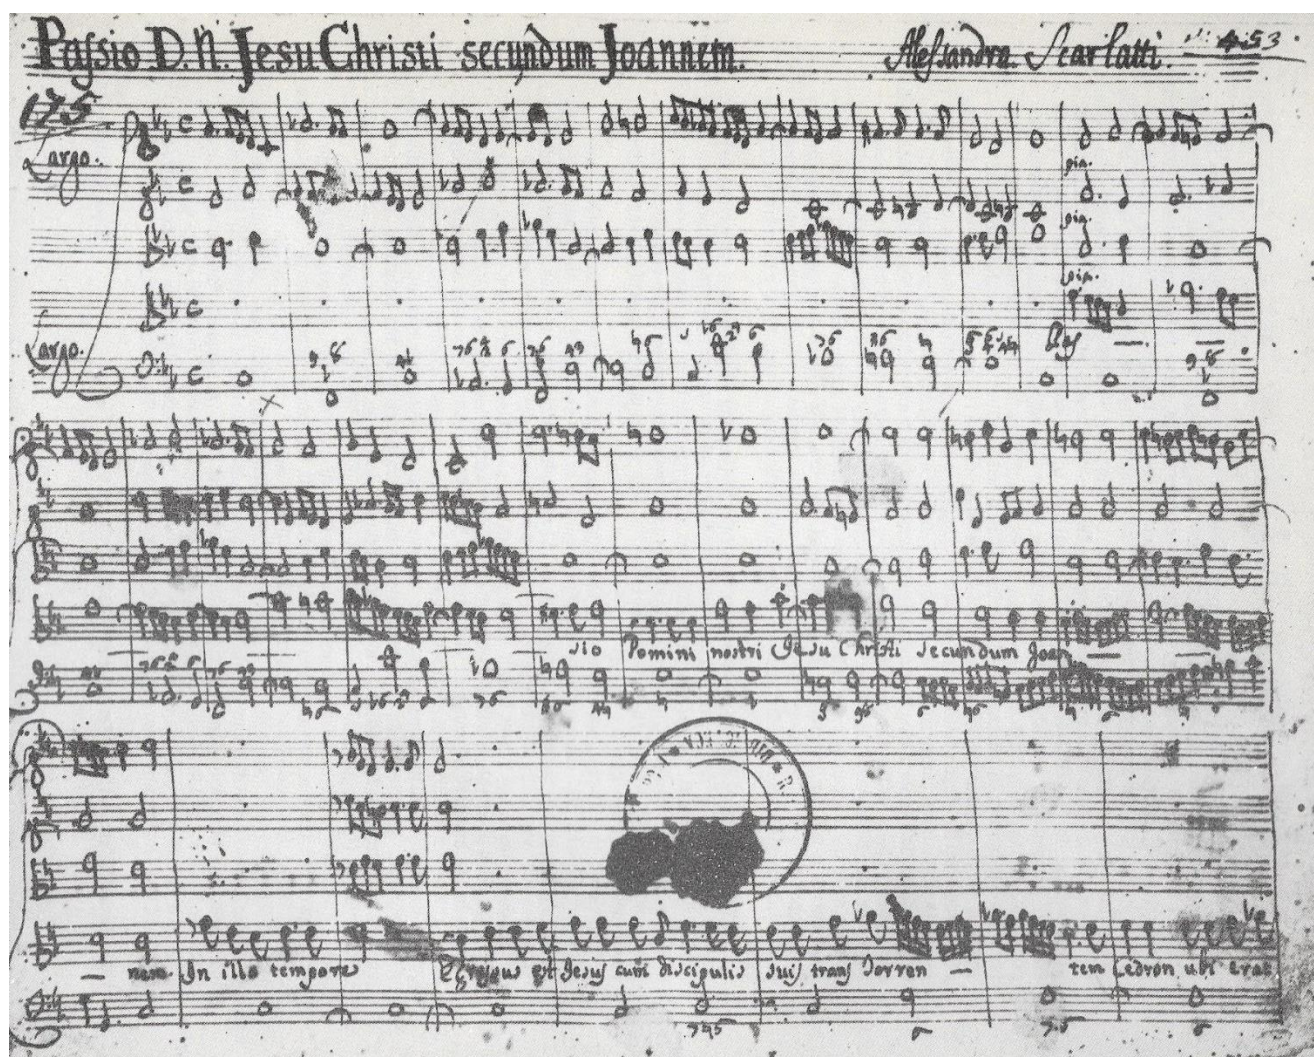 Passio D. N. Jesu Christi secundum Joannem. Alessandro Scarlatti. 453
175
Largo.
pia.
pia.
pia.
Largo. Pas
sio Domini nostri Jesu Christi secundum Joan
nem In illo tempore Egressus est Jesus cum discipulis suis trans Torren tem Cedron ubi erat